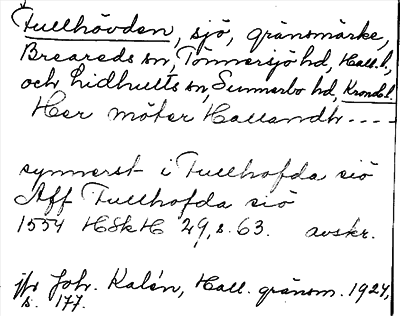 Fullhövden, sjö, gränsmärke,
Breareds sn, Tönnersjö hd, Hall. l,
och Lidhults sn, Sunnerbo hd, Kronob. l.
Her möter Hallandh - - - -
synnerst i Fullhofda siö
Aff Fullhofda siö
1554 HSkH 29, s. 63. avskr.
jfr Joh. Kalén, Hall. gränsm. 1924,
s. 177.